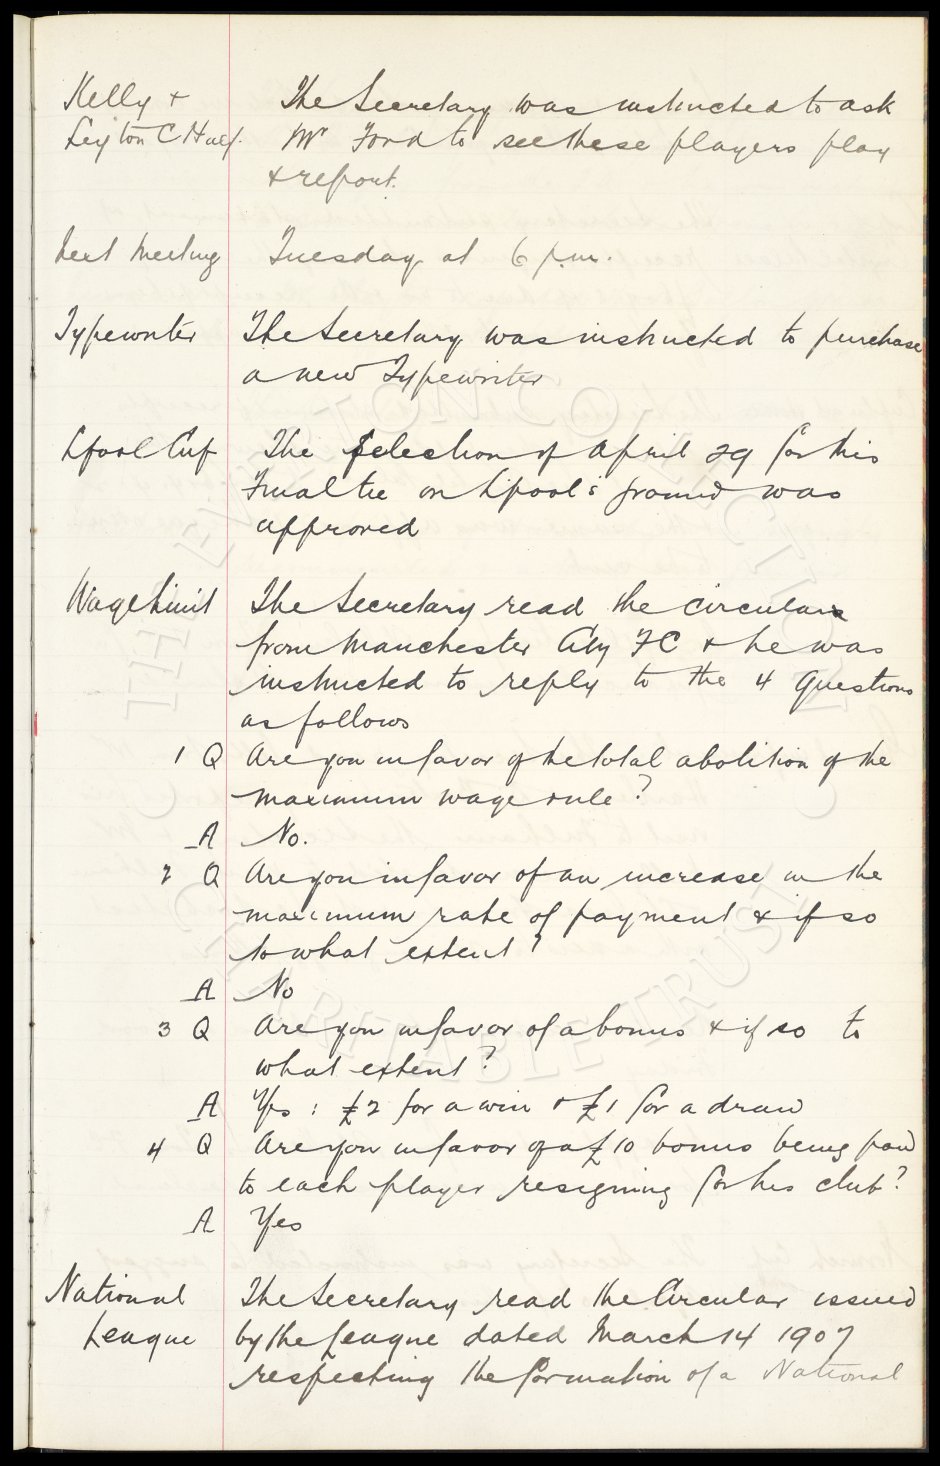 Kelly +
Leyton C Half.
The Secretary was instructed to ask
Mr Ford to see these players play
& report.
Next Meeting
Tuesday at 6 p.m.
Typewriter
The Secretary was instructed to purchase
a new Typewriter
Lpool Cup
The Selection of April 29 for this
Final tie on L'pool's ground was
approved
Wage Limit
The Secretary read the circular
from Manchester City FC & he was
instructed to reply to the 4 Questions
as follows
1 Q Are you in favor of the total abolition of the
maximum wage rule?
A No.
2 Q Are you in favor of an increase in the
maximum rate of payment & if so
to what extent?
A No
3 Q Are you in favor of a bonus & if so to
what extent?
A Yes : £2 for a win & £1 for a draw
4 Q Are you in favor of a £10 bonus being paid
to each player resigning for his club?
A Yes
National
League
The Secretary read the Circular issued
by the League dated March 14 1907
respecting the formation of a National
THE EVERTON COLLECTION
CHARITABLE TRUST